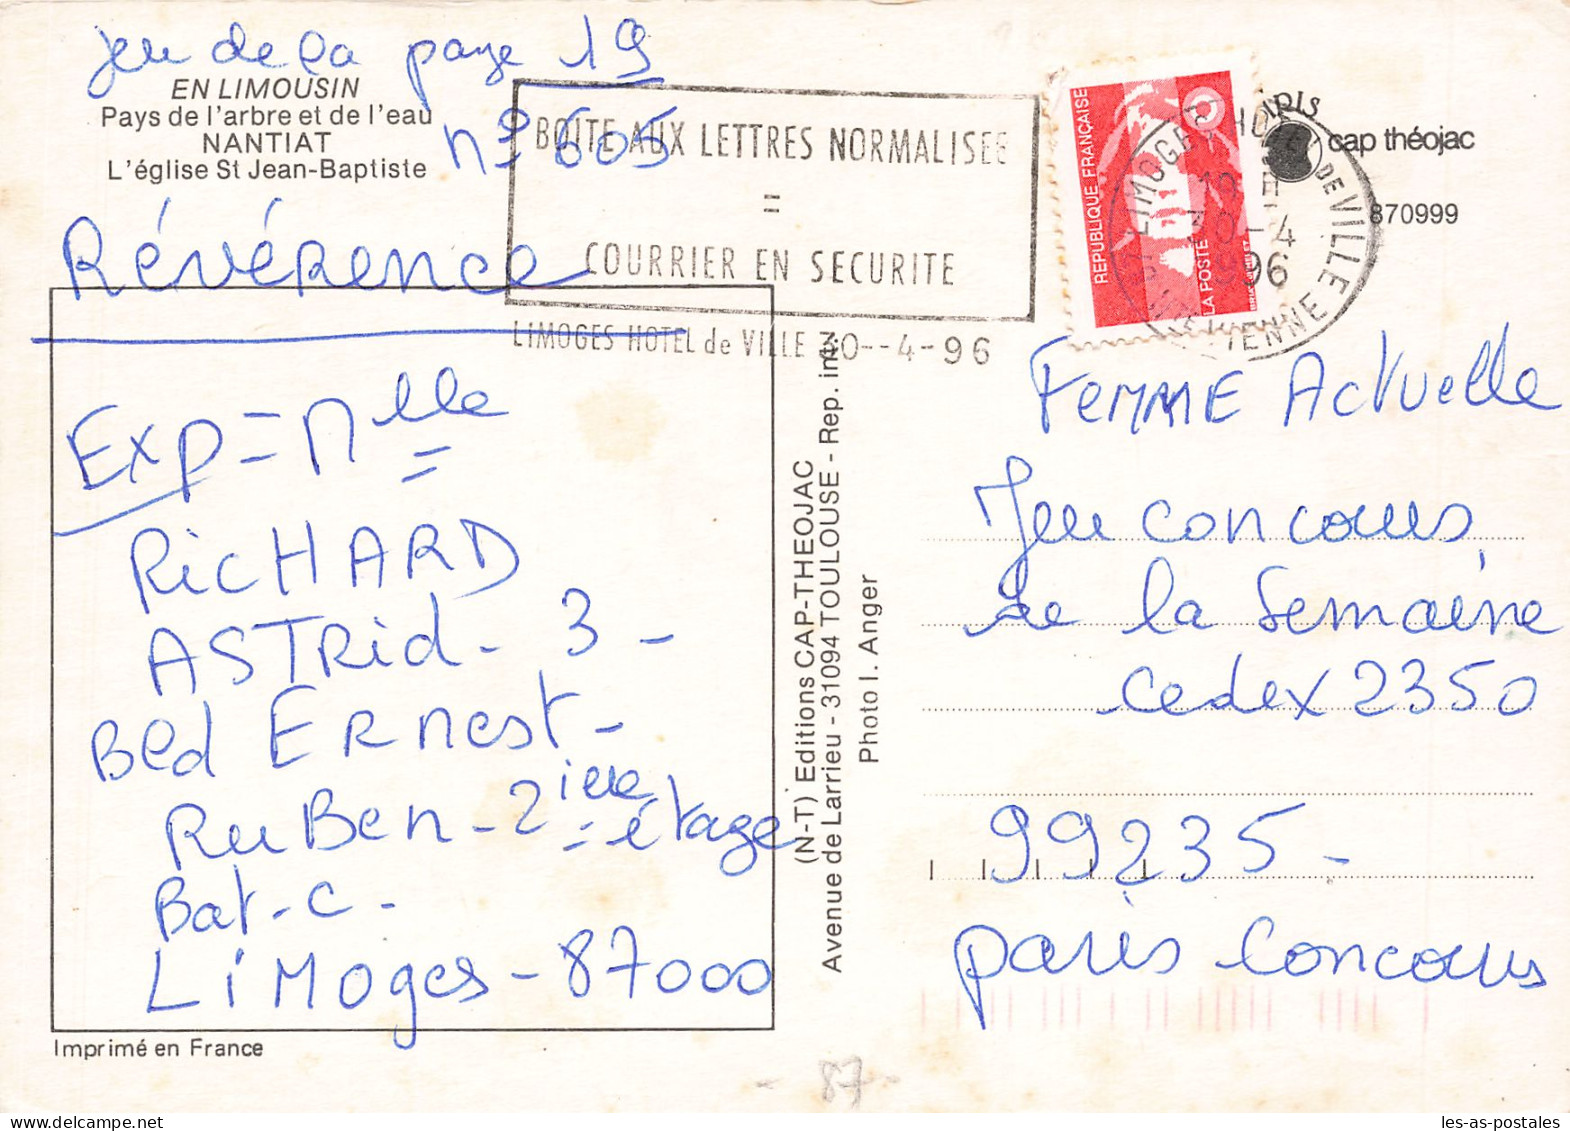 jeu de la page 19
EN LIMOUSIN
Pays de l'arbre et de l'eau
NANTIAT
L'église St Jean-Baptiste
nº 605
Révérence
BOITE AUX LETTRES NORMALISEE
=
COURRIER EN SECURITE
LIMOGES HOTEL de VILLE 30--4-96
REPUBLIQUE FRANÇAISE
LA POSTE
LIMOGES HOTEL DE VILLE
30-4
1996
VIENNE
cap théojac
870999
Exp = Mlle
RICHARD
ASTRid - 3 -
Bld ERnest -
RuBen - 2ième étage
Bat - C -
LiMoges - 87000
Imprimé en France
(N-T) Editions CAP-THEOJAC
Avenue de Larrieu - 31094 TOULOUSE - Rep. int.
Photo I. Anger
FEMME Actuelle
Jeu concours
de la Semaine
cedex 2350
99235 -
paris concours
- 87 -
les-as-postales